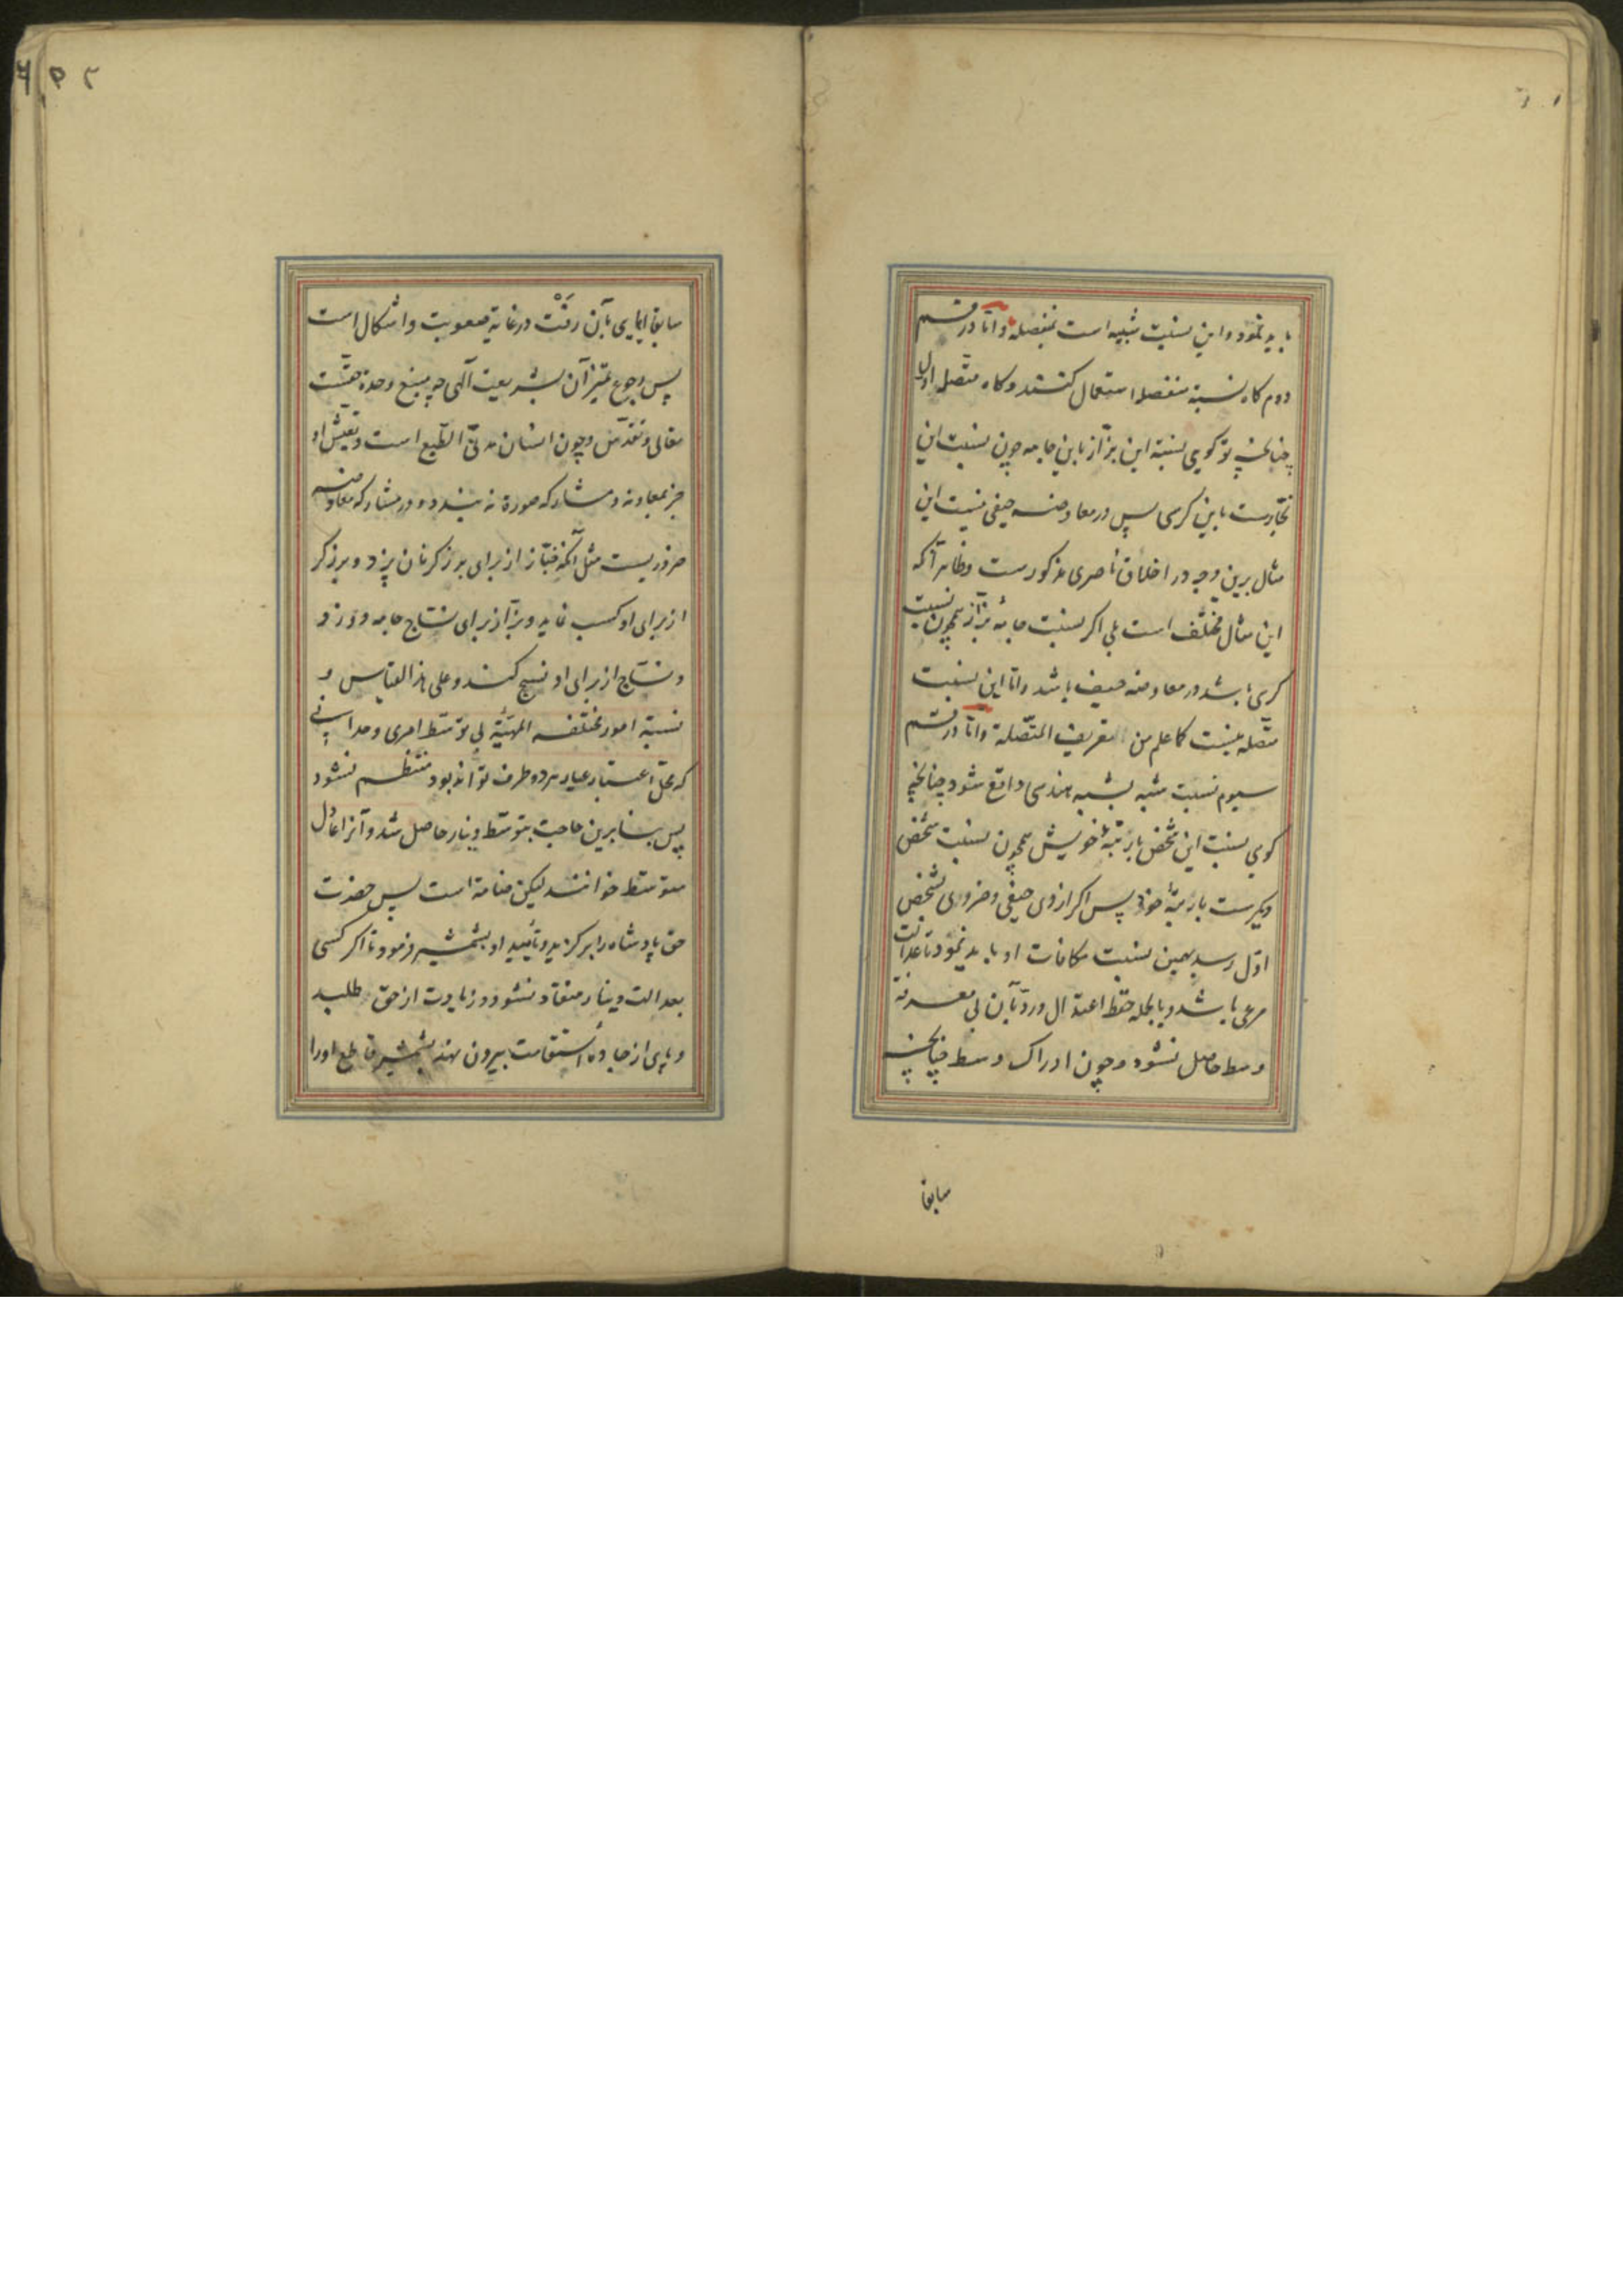 باید نمود و این نسبت شبیه است بمنفصله و اما در قسم
دوم کاه نسبة منفصله استعمال کنند و کاه متصله اول
چنانچه تو کویی نسبة این بزاز باین جامه چون نسبت این
نجارست باین کرسی پس در معاوضه حیفی نیست این
مثال برین وجه در اخلاق ناصری مذکورست و ظاهر آنکه
این مثال مختلف است بلی اکر نسبت جامهٔ بزاز همچون نسبت
کرسی باشد در معاوضه حیف باشد و اما این نسبت
متصله نیست کما علم من تعریف المتصلة و اما در قسم
سیوم نسبت شبه بشبه هندسی واقع شود چنانچه
کویی نسبت این شخص با رتبهٔ خویش همچون نسبت شخص
دیکرست با رتبهٔ خود پس اکر از وی حیفی و ضرری بشخص
اول رسد بهمین نسبت مکافات او باید نمود تا عدالت
مرعی باشد و بالجمله حفظ اعتدال و رد بآن بی معرفة
وسط حاصل نشود و چون ادراک وسط چنانچه
سابقا
۲۵۲
سابقا ایمایی بآن رفت در غایة صعوبت و اشکال است
پس رجوع تمیز آن بشریعت آلهی چه منبع وحدة حقست
تعالی و تقدس و چون انسان مدنی الطبع است و تعیش او
جز بمعاونه و مشارکه صورة نه بندد و در مشارکه معاوضه
ضروریست مثل آنکه خباز از برای برزکر نان پزد و برزکر
از برای او کسب نماید و بزاز برای نساج جامه دوزد
و نساج از برای او نسج کند و علی هذا القیاس و
نسبة امور مختلفه المهیّة بی توسط امری وحدانی
که محل اعتبار عیار هر دو طرف تواند بود منتظم نشود
پس بنا برین حاجت بتوسط دینار حاصل شد و آنرا عادل
متوسط خوانند لیکن صامة است پس حضرت
حق پادشاه را برکزید و تأیید او بشمشیر فرمود تا اکر کسی
بعدالت دینار منقاد نشود و زیادت از حق طلبد
و پای از جادهٔ استقامت بیرون نهد بشمشیر قاطع او را